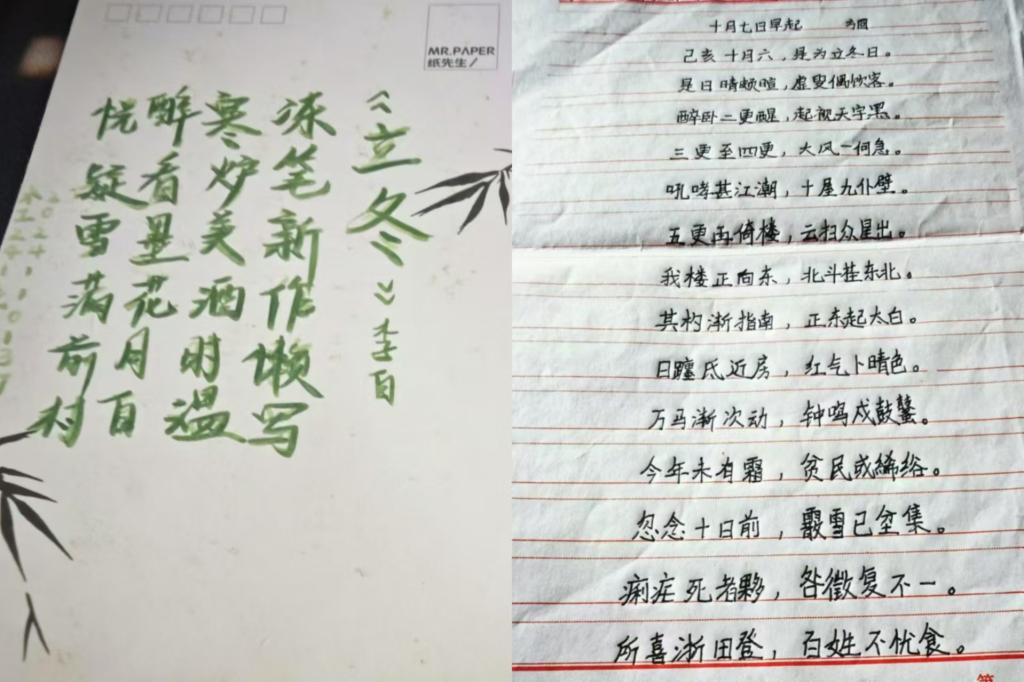 MR.PAPER
纸先生/
《立冬》李白
冻笔新作懒写
寒炉美酒时温
醉看墨花月白
恍疑雪满前村
十月七日早起
己亥十月六，是为立冬日。
是日晴颇暄，虚叟偶饮客。
醉卧二更醒，起视天字黑。
三更至四更，大风一何急。
吼哮甚江潮，十屋九仆壁。
五更再倚楼，云扫众星出。
我楼正向东，北斗挂东北。
其杓渐指南，正东起太白。
日躔氐近房，红气卜晴色。
万马渐次动，钟鸣戍鼓鼕。
今年未有霜，贫民或絺绤。
忽念十日前，霰雪已坌集。
痢疟死者夥，咎徵复不一。
所喜浙田登，百姓不忧食。